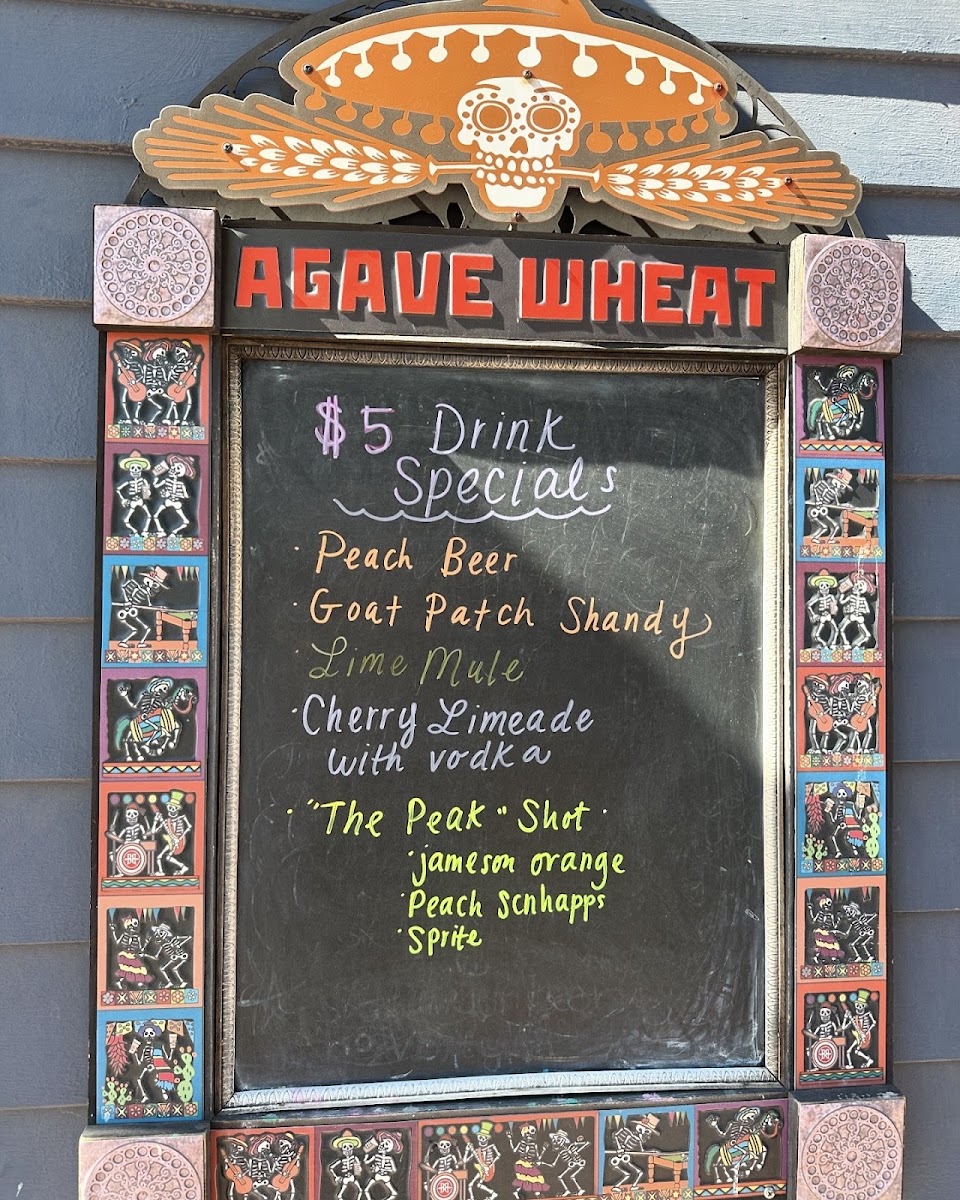 AGAVE WHEAT
$5 Drink
Specials
· Peach Beer
· Goat Patch Shandy
· Lime Mule
· Cherry Limeade
with vodka
· "The Peak" Shot ·
· jameson orange
· Peach Scnhapps
· Sprite